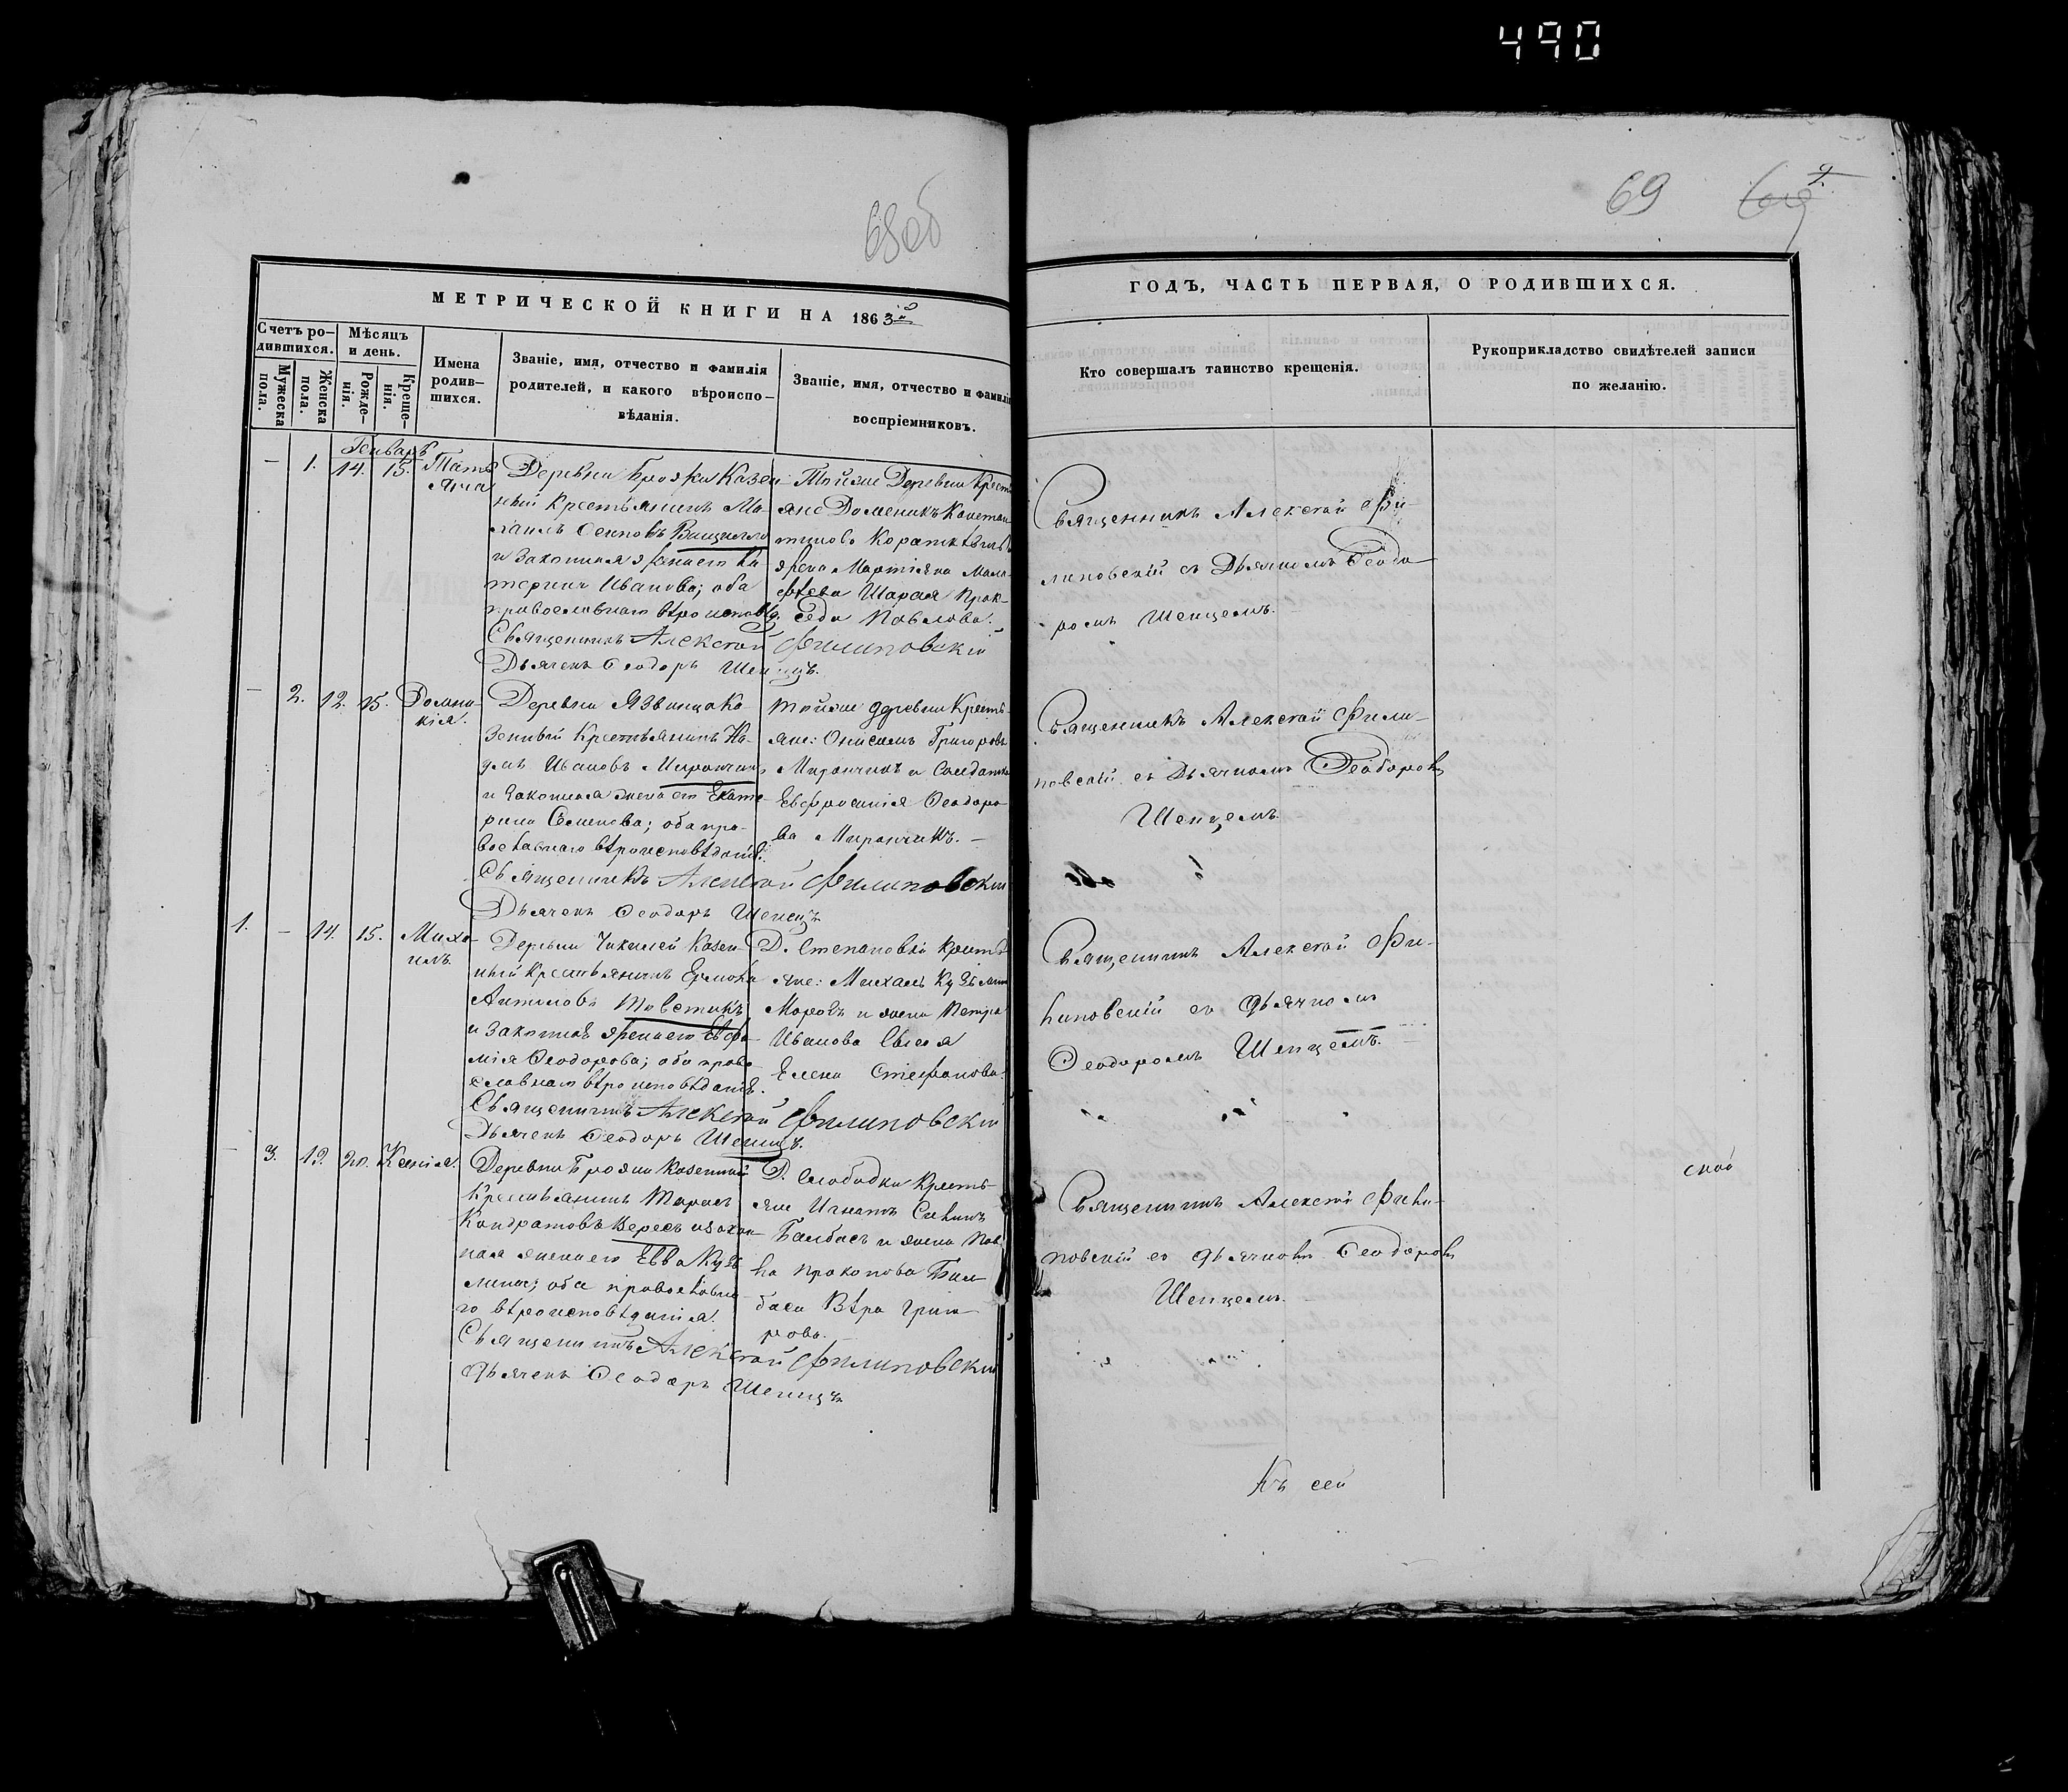 490
68об
69
МЕТРИЧЕСКОЙ КНИГИ НА 1863й
ГОДЪ, ЧАСТЬ ПЕРВАЯ, О РОДИВШИХСЯ.
Счетъ ро-
дившихся.
Мужеска
пола.
Женска
пола.
Мѣсяцъ
и день.
Рожде-
нія.
Креще-
нія.
Имена
родив-
шихся.
Званіе, имя, отчество и фамилія
родителей, и какого вѣроиспо-
вѣданія.
Званіе, имя, отчество и фамилі
воспріемниковъ.
Кто совершалъ таинство крещенія.
Рукоприкладство свидѣтелей записи
по желанію.
Генварь
— 1. 14. 15.
Татъ
яна
Деревни Брожи Казен
ный Крестьянинъ Ми-
хаилъ Осиповъ
и законная жена его Ка
терина Иванова; оба
православнаго вѣроисповѣд.
Священникъ Алексѣй Филиповскій
Дьячекъ Ѳеодоръ Шепецъ.
Тойже Деревни Крест
яне Доменикъ Констан
тиновъ
жена Мартіяна
Шарая Прак-
седа Павлова.
Священникъ Алексѣй Фи-
липовскій съ Дьячкомъ Ѳеодо
ромъ Шепцемъ.
— 2. 12. 15.
Домни-
кія.
Деревни Язвинцо Ка-
зенный Крестьянинъ
Ивановъ Мирончикъ
и законная жена его Екате-
рина Семенова; оба пра-
вославнаго вѣроисповѣданія.
Священникъ Алексѣй Филиповскій
Дьячекъ Ѳеодоръ Шепецъ
Тойже деревни Кресть-
яне: Онисимъ Григоровъ
Мирончикъ и Солдатка
Евфросинія Ѳеодоро-
ва Мирончикъ. —
Священникъ Алексѣй Фили-
повскій съ Дьячкомъ Ѳеодоромъ
Шепцемъ.
1. — 14. 15.
Миха-
илъ.
Деревни Казен-
ный Крестьянинъ Ермола
Антоновъ Товстикъ
и законная жена его Евфи-
мія Ѳеодорова; оба право
славнаго вѣроисповѣданія.
Священникъ Алексѣй Филиповскій
Дьячекъ Ѳеодоръ Шепецъ.
Д. Степановки Кресть
яне: Михаилъ Кузьминъ
Морозъ и жена Петра
Иванова
Елена Стефанова.
Священникъ Алексѣй Фи-
липовскій съ дьячкомъ
Ѳеодоромъ Шепцемъ. —
— 3. 19. 20.
Ксенія.
Деревни Брожи Казенный
Крестьянинъ Тарасъ
Кондратовъ Вересъ и закон-
ная жена его Евва Кузь
мина; оба православна-
го вѣроисповѣданія.
Священникъ Алексѣй Филиповскій
Дьячекъ Ѳеодоръ Шепецъ
Д. Слободки Кресть-
яне Игнатъ
Балбасъ и жена Пав-
ла Прокопова Бал
баса Вѣра Григо-
рова. —
Священникъ Алексѣй Фили-
повскій съ дьячкомъ Ѳеодоромъ
Шепцемъ.
ской
Къ сей